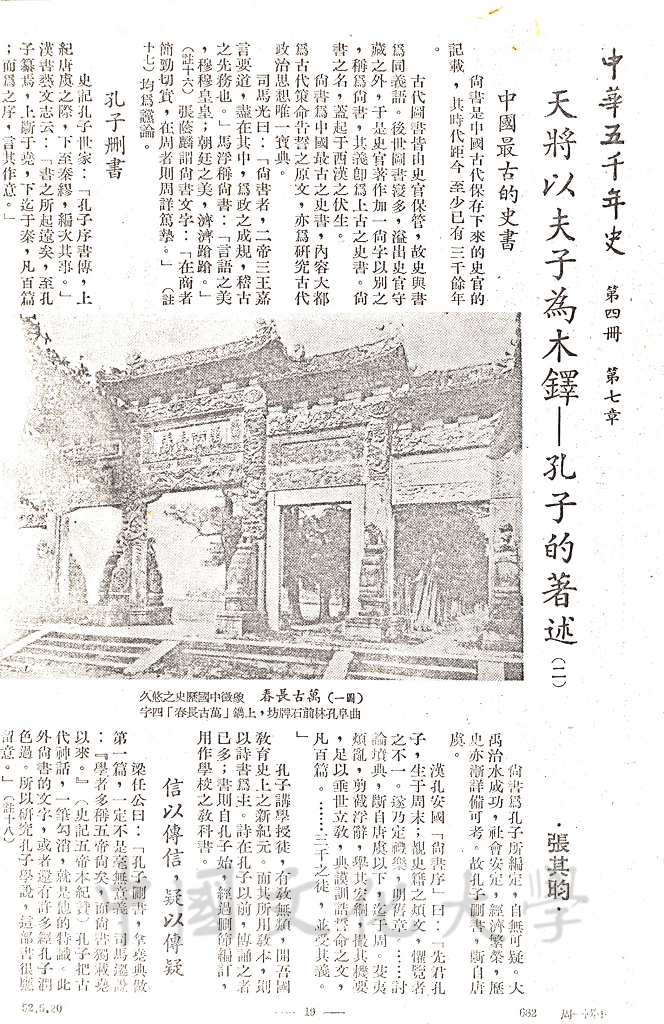 中華五千年史　第四冊　第七章
天將以夫子為木鐸—孔子的著述(二)
·張其昀·
中國最古的史書
尙書是中國古代保存下來的史官的
記載，其時代距今至少已有三千餘年
。
古代圖書皆由史官保管，故史與書
爲同義語。後世圖書寖多，溢出史官守
藏之外，于是史官著作加一尙字以別之
，稱爲尙書，其義卽爲上古之史書。尙
書之名，蓋起于西漢之伏生。
尙書爲中國最古之史書，內容大都
爲古代策命告誓之原文，亦爲研究古代
政治思想唯一寶典。
司馬光曰：「尙書者，二帝三王嘉
言要道，盡在其中，爲政之成規，稽古
之先務也。」馬浮稱尙書：「言語之美
，穆穆皇皇；朝廷之美，濟濟蹌蹌。」
（註十六）張蔭麟謂尙書文字：「在商者
簡勁切實，在周者則周詳篤摯。」（註
十七）均爲讜論。
孔子删書
史記孔子世家：「孔子序書傳，上
紀唐虞之際，下至秦繆，編次其事。」
漢書藝文志云：「書之所起遠矣，至孔
子纂焉，上斷于堯，下迄于秦，凡百篇
；而爲之序，言其作意。」
(圖一)萬古長春　象徵中國歷史之悠久
曲阜孔林前石牌坊，上鐫「萬古長春」四字
尙書爲孔子所編定，自無可疑。大
禹治水成功，社會安定，經濟繁榮，歷
史亦漸詳備可考。故孔子删書，斷自唐
虞。
漢孔安國「尙書序」曰：「先君孔
子，生于周末；覩史籍之煩文，懼覽者
之不一。遂乃定禮樂，明舊章，……討
論墳典，斷自唐虞以下，迄于周。芟夷
煩亂，剪截浮辭，舉其宏綱，撮其機要
，足以垂世立教，典謨訓誥誓命之文，
凡百篇。……三千之徒，並受其義。
」
孔子講學授徒，有敎無類，開吾國
敎育史上之新紀元。而其所用敎本，則
以詩書爲主。詩在孔子以前，傳誦之者
已多；書則自孔子始，經過删篩編訂，
用作學校之敎科書。
信以傳信，疑以傳疑
梁任公曰：「孔子删書，拿堯典做
第一篇，一定不是毫無意義。司馬遷說
：『學者多稱五帝尙矣，而尙書獨載堯
以來。』（史記五帝本紀賛）孔子把古
代神話，一筆勾消，就是他的特識。此
外尙書的文字，或者還有許多經孔子潤
色過。所以研究孔子學說，這部書很應
留意。」（註十八）
中國文化大學
52.5.20
— 19 —
682